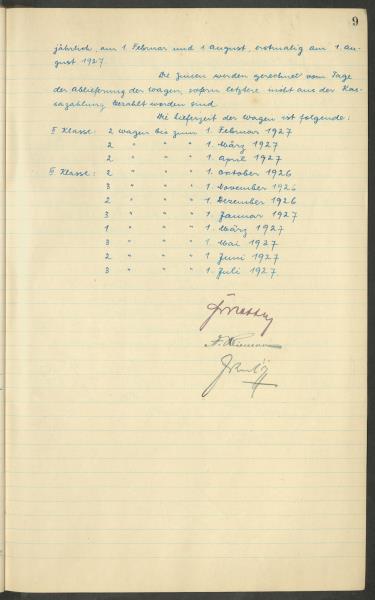 9
jährlich, am 1. Februar und 1 august, erstmalig am 1. au-
gust 1927.
Die Zinsen werden gerechnet vom Tage
der Ablieferung der Wagen, sofern letztere nicht aus der Kas-
sazahlung bezahlt worden sind
Die Lieferzeit der Wagen ist folgende:
II Klasse: 2 wagen bis zum 1. Februar 1927
2 " " " 1. März 1927
2 " " " 1. april 1927
III Klasse: 2 " " " 1. october 1926
3 " " " 1. November 1926
2 " " " 1. Dezember 1926
3 " " " 1. Januar 1927
1 " " " 1. März 1927
3 " " " 1. Mai 1927
2 " " " 1. Juni 1927
3 " " " 1. Juli 1927